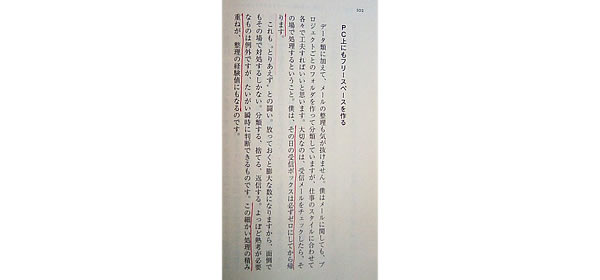 102
PC上にもフリースペースを作る
データ類に加えて、メールの整理も気が抜けません。僕はメールに関しても、プ
ロジェクトごとのフォルダを作って分類していますが、仕事のスタイルに合わせて
各々で工夫すればいいと思います。大切なのは、受信メールをチェックしたら、そ
の場で処理するということ。僕は、その日の受信ボックスは必ずゼロにしてから帰
ります。
これも〝とりあえず〟との闘い。放っておくと膨大な数になりますから、面倒で
もその場で対処するしかない。分類する、捨てる、返信する。よっぽど熟考が必要
なものは例外ですが、たいがい瞬時に判断できるものです。この細かい処理の積み
重ねが、整理の経験値にもなるのです。